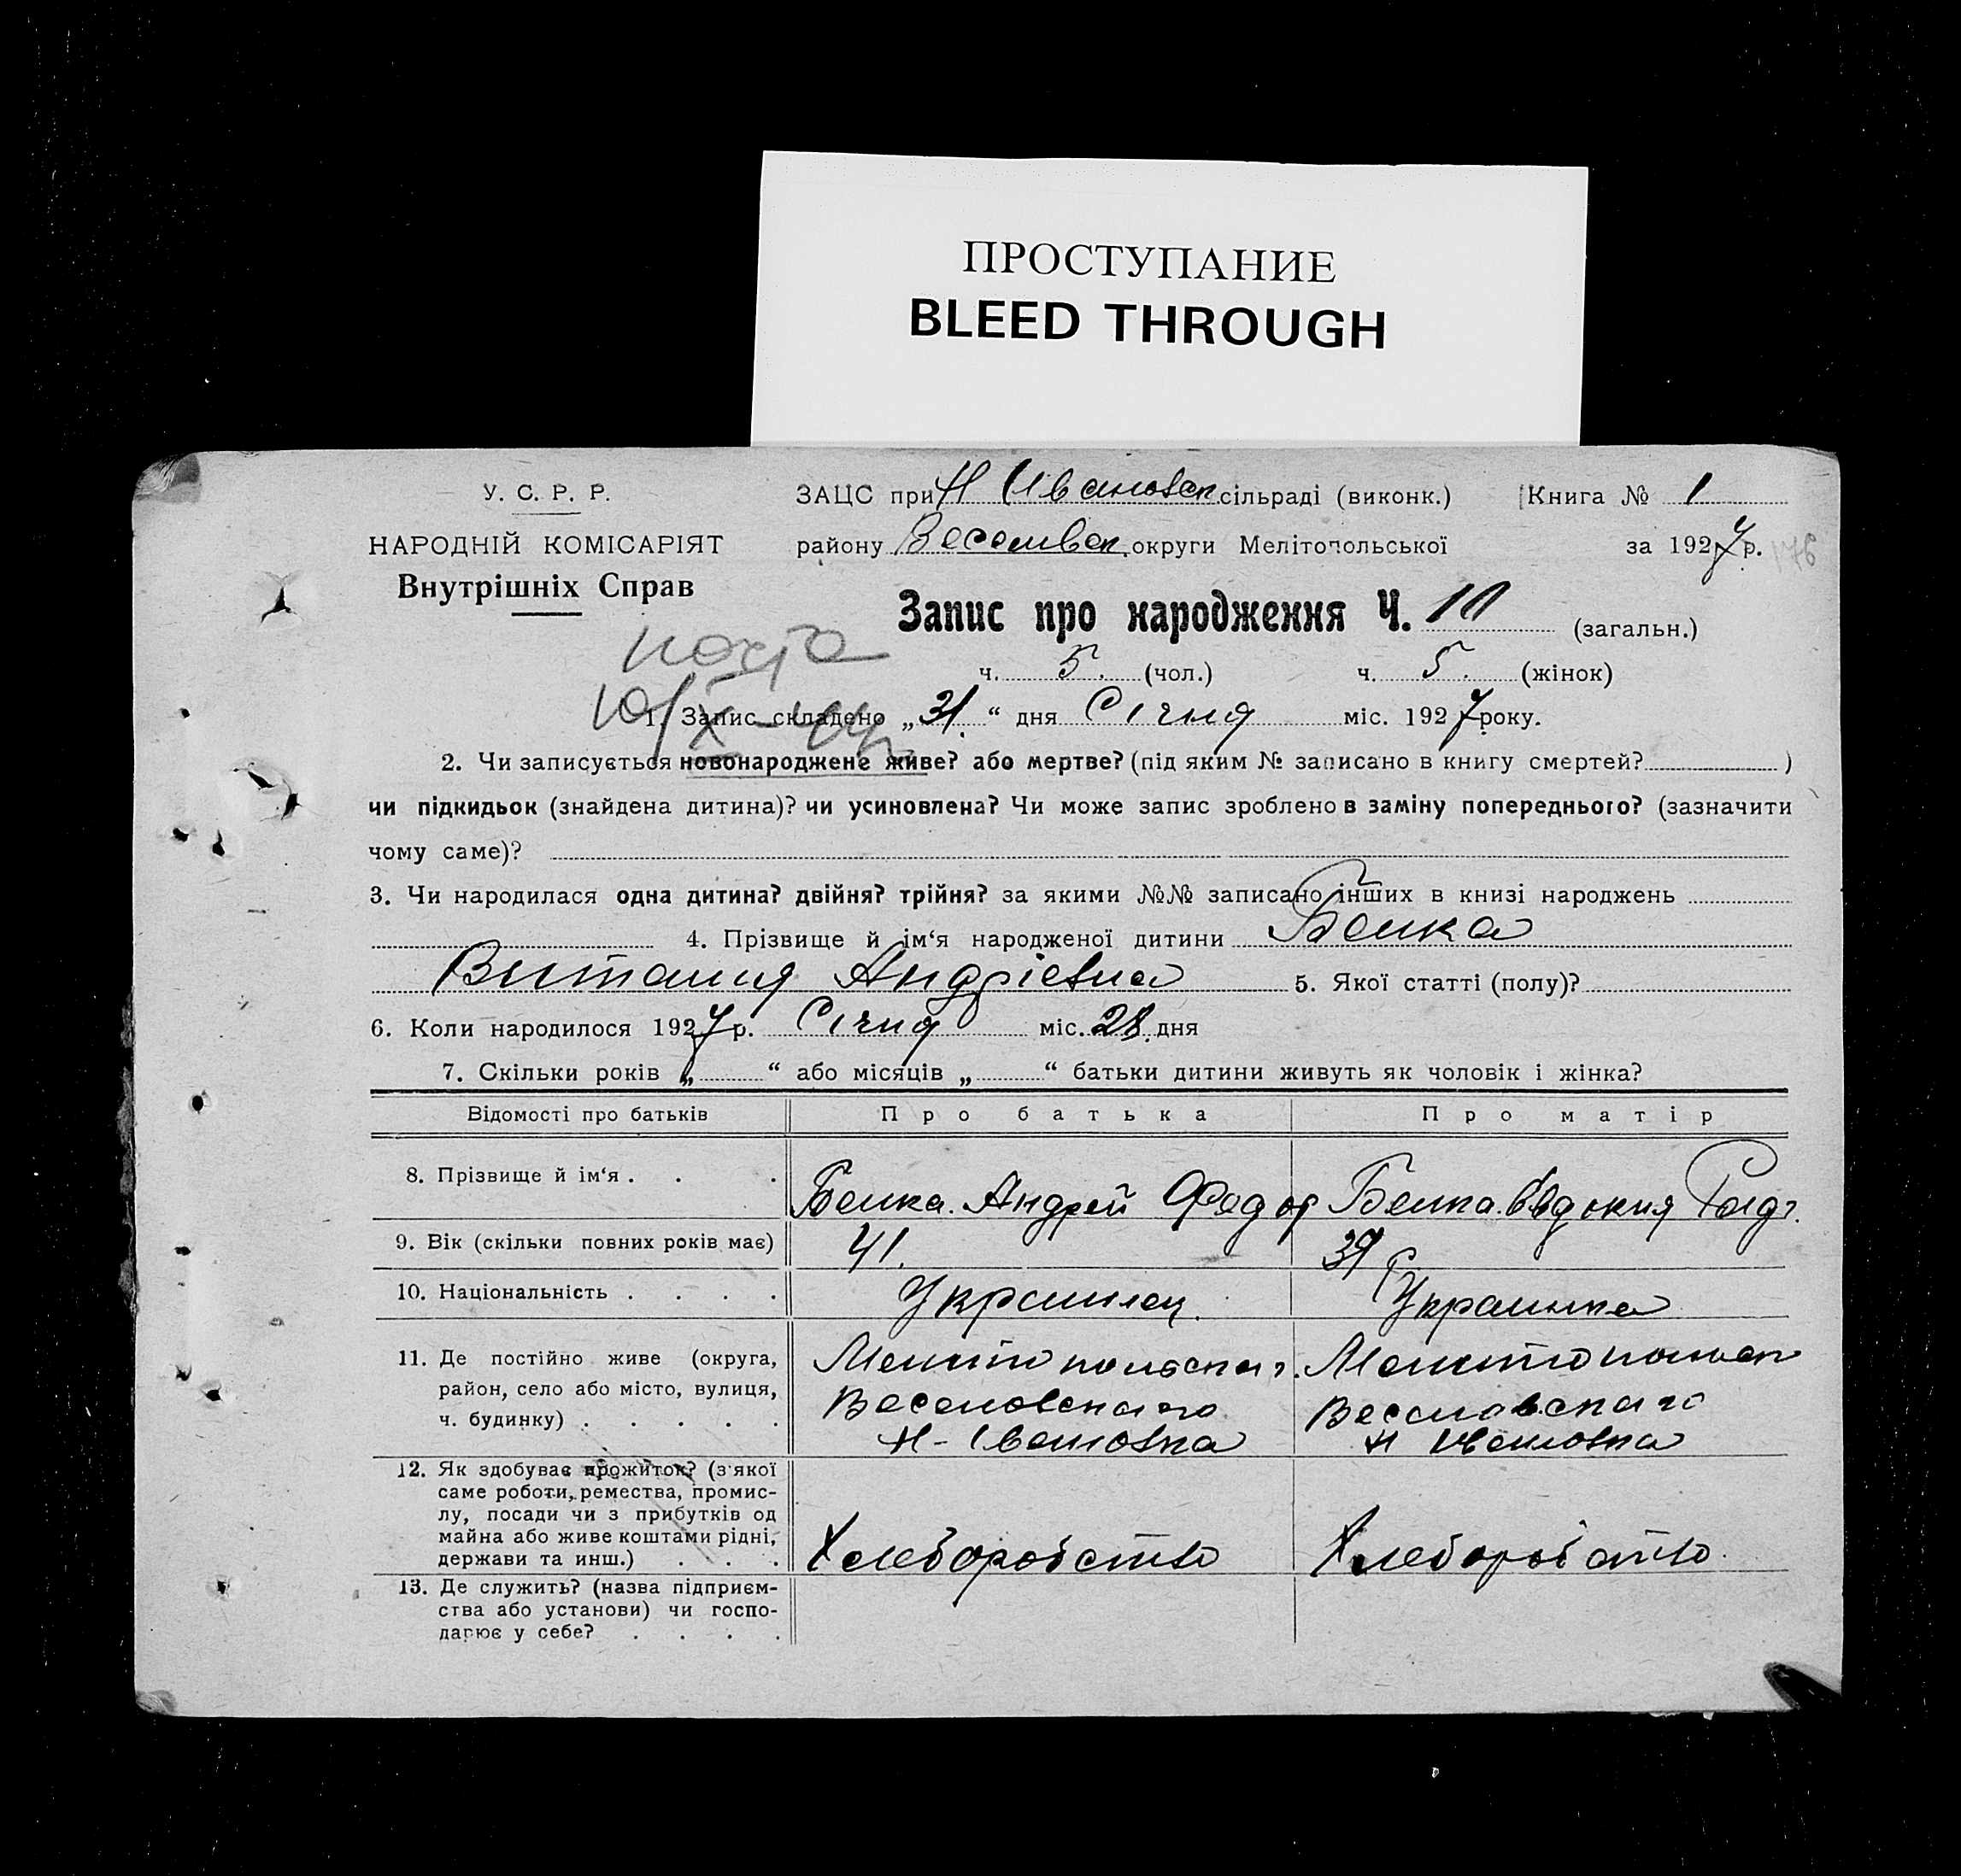 ПРОСТУПАНИЕ
BLEED THROUGH
У. С. Р. Р.
НАРОДНІЙ КОМІСАРІЯТ
Внутрішніх Справ
ЗАЦС при Н Ивановск сільраді (виконк.) Книга № 1
району Веселовск. округи Мелітопольської за 1927 р. 176
Запис про народження Ч. 10 (загальн.)
ч. 5. (чол.) ч. 5. (жінок)
1. Запис складено „31.“ дня Січня міс. 1927 року.
2. Чи записується новонароджене живе? або мертве? (під яким № записано в книгу смертей? )
чи підкидьок (знайдена дитина)? чи усиновлена? Чи може запис зроблено в заміну попереднього? (зазначити
чому саме)?
3. Чи народилася одна дитина? двійня? трійня? за якими №№ записано інших в книзі народжень
4. Прізвище й ім‘я народженої дитини Белка
Виталия Андріевна 5. Якої статті (полу)?
6. Коли народилося 1927 р. Січня міс. 28. дня
7. Скільки років „ “ або місяців „ “ батьки дитини живуть як чоловік і жінка?
Відомості про батьків Про батька Про матір
8. Прізвище й ім‘я . . . Белка. Андрей Федор Белка. Евдокия
9. Вік (скільки повних років має) 41. 39
10. Національність . . . . Украинец. Украинка
11. Де постійно живе (округа, Мелитопольскаг. Мелитопольск
район, село або місто, вулиця, Веселовскаго Веселовскаго
ч. будинку) . . . . . Н-Ивановка Н Ивановка
12. Як здобуває прожиток? (з‘якої
саме роботи, ремества, промис-
лу, посади чи з прибутків од
майна або живе коштами рідні,
держави та инш.) . . . Хлеборобство Хлеборобство.
13. Де служить? (назва підприєм-
ства або установи) чи госпо-
дарює у себе? . . . .